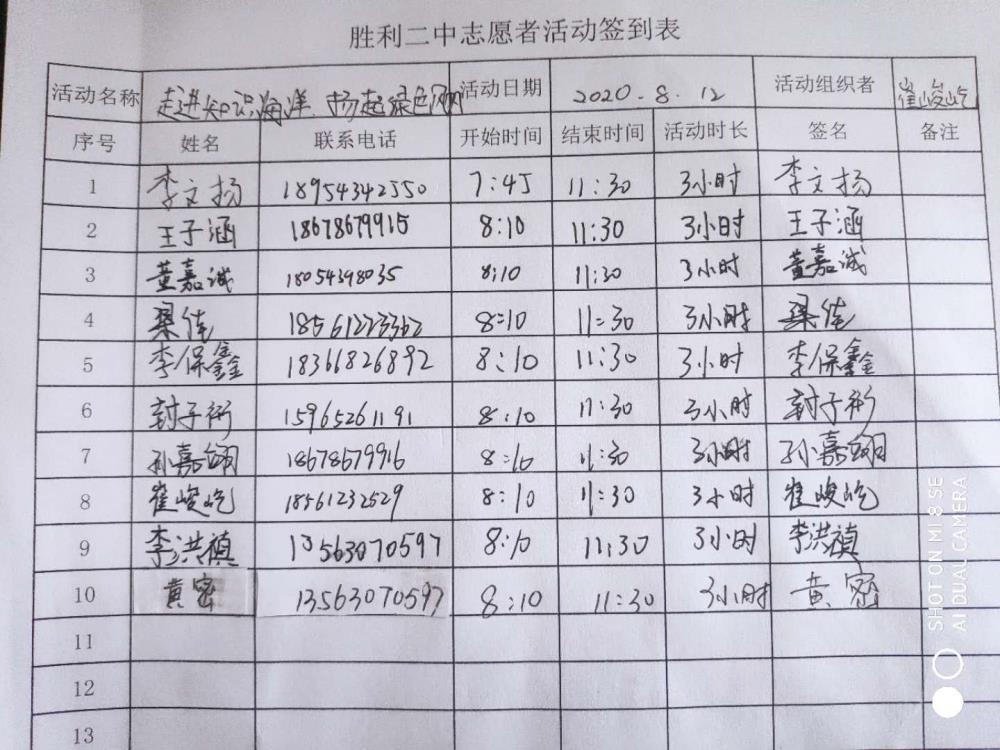 胜利二中志愿者活动签到表
活动名称 走进知识海洋.扬起绿色风帆 活动日期 2020.8.12 活动组织者 崔峻屹
序号 姓名 联系电话 开始时间 结束时间 活动时长 签名 备注
1 李文扬 18954342550 7:45 11:30 3小时 李文扬
2 王子涵 18678679915 8:10 11:30 3小时 王子涵
3 董嘉诚 18054398035 8:10 11:30 3小时 董嘉诚
4 梁佳 18561223362 8:10 11:30 3小时 梁佳
5 李保鑫 18366826892 8:10 11:30 3小时 李保鑫
6 封子衎 15965261191 8:10 11:30 3小时 封子衎
7 孙嘉翊 18678679916 8:10 11:30 3小时 孙嘉翊
8 崔峻屹 18561232529 8:10 11:30 3小时 崔峻屹
9 李洪禛 13563070597 8:10 11:30 3小时 李洪禛
10 黄密 13563070597 8:10 11:30 3小时 黄密
11
12
13
SHOT ON MI 8 SE
AI DUAL CAMERA